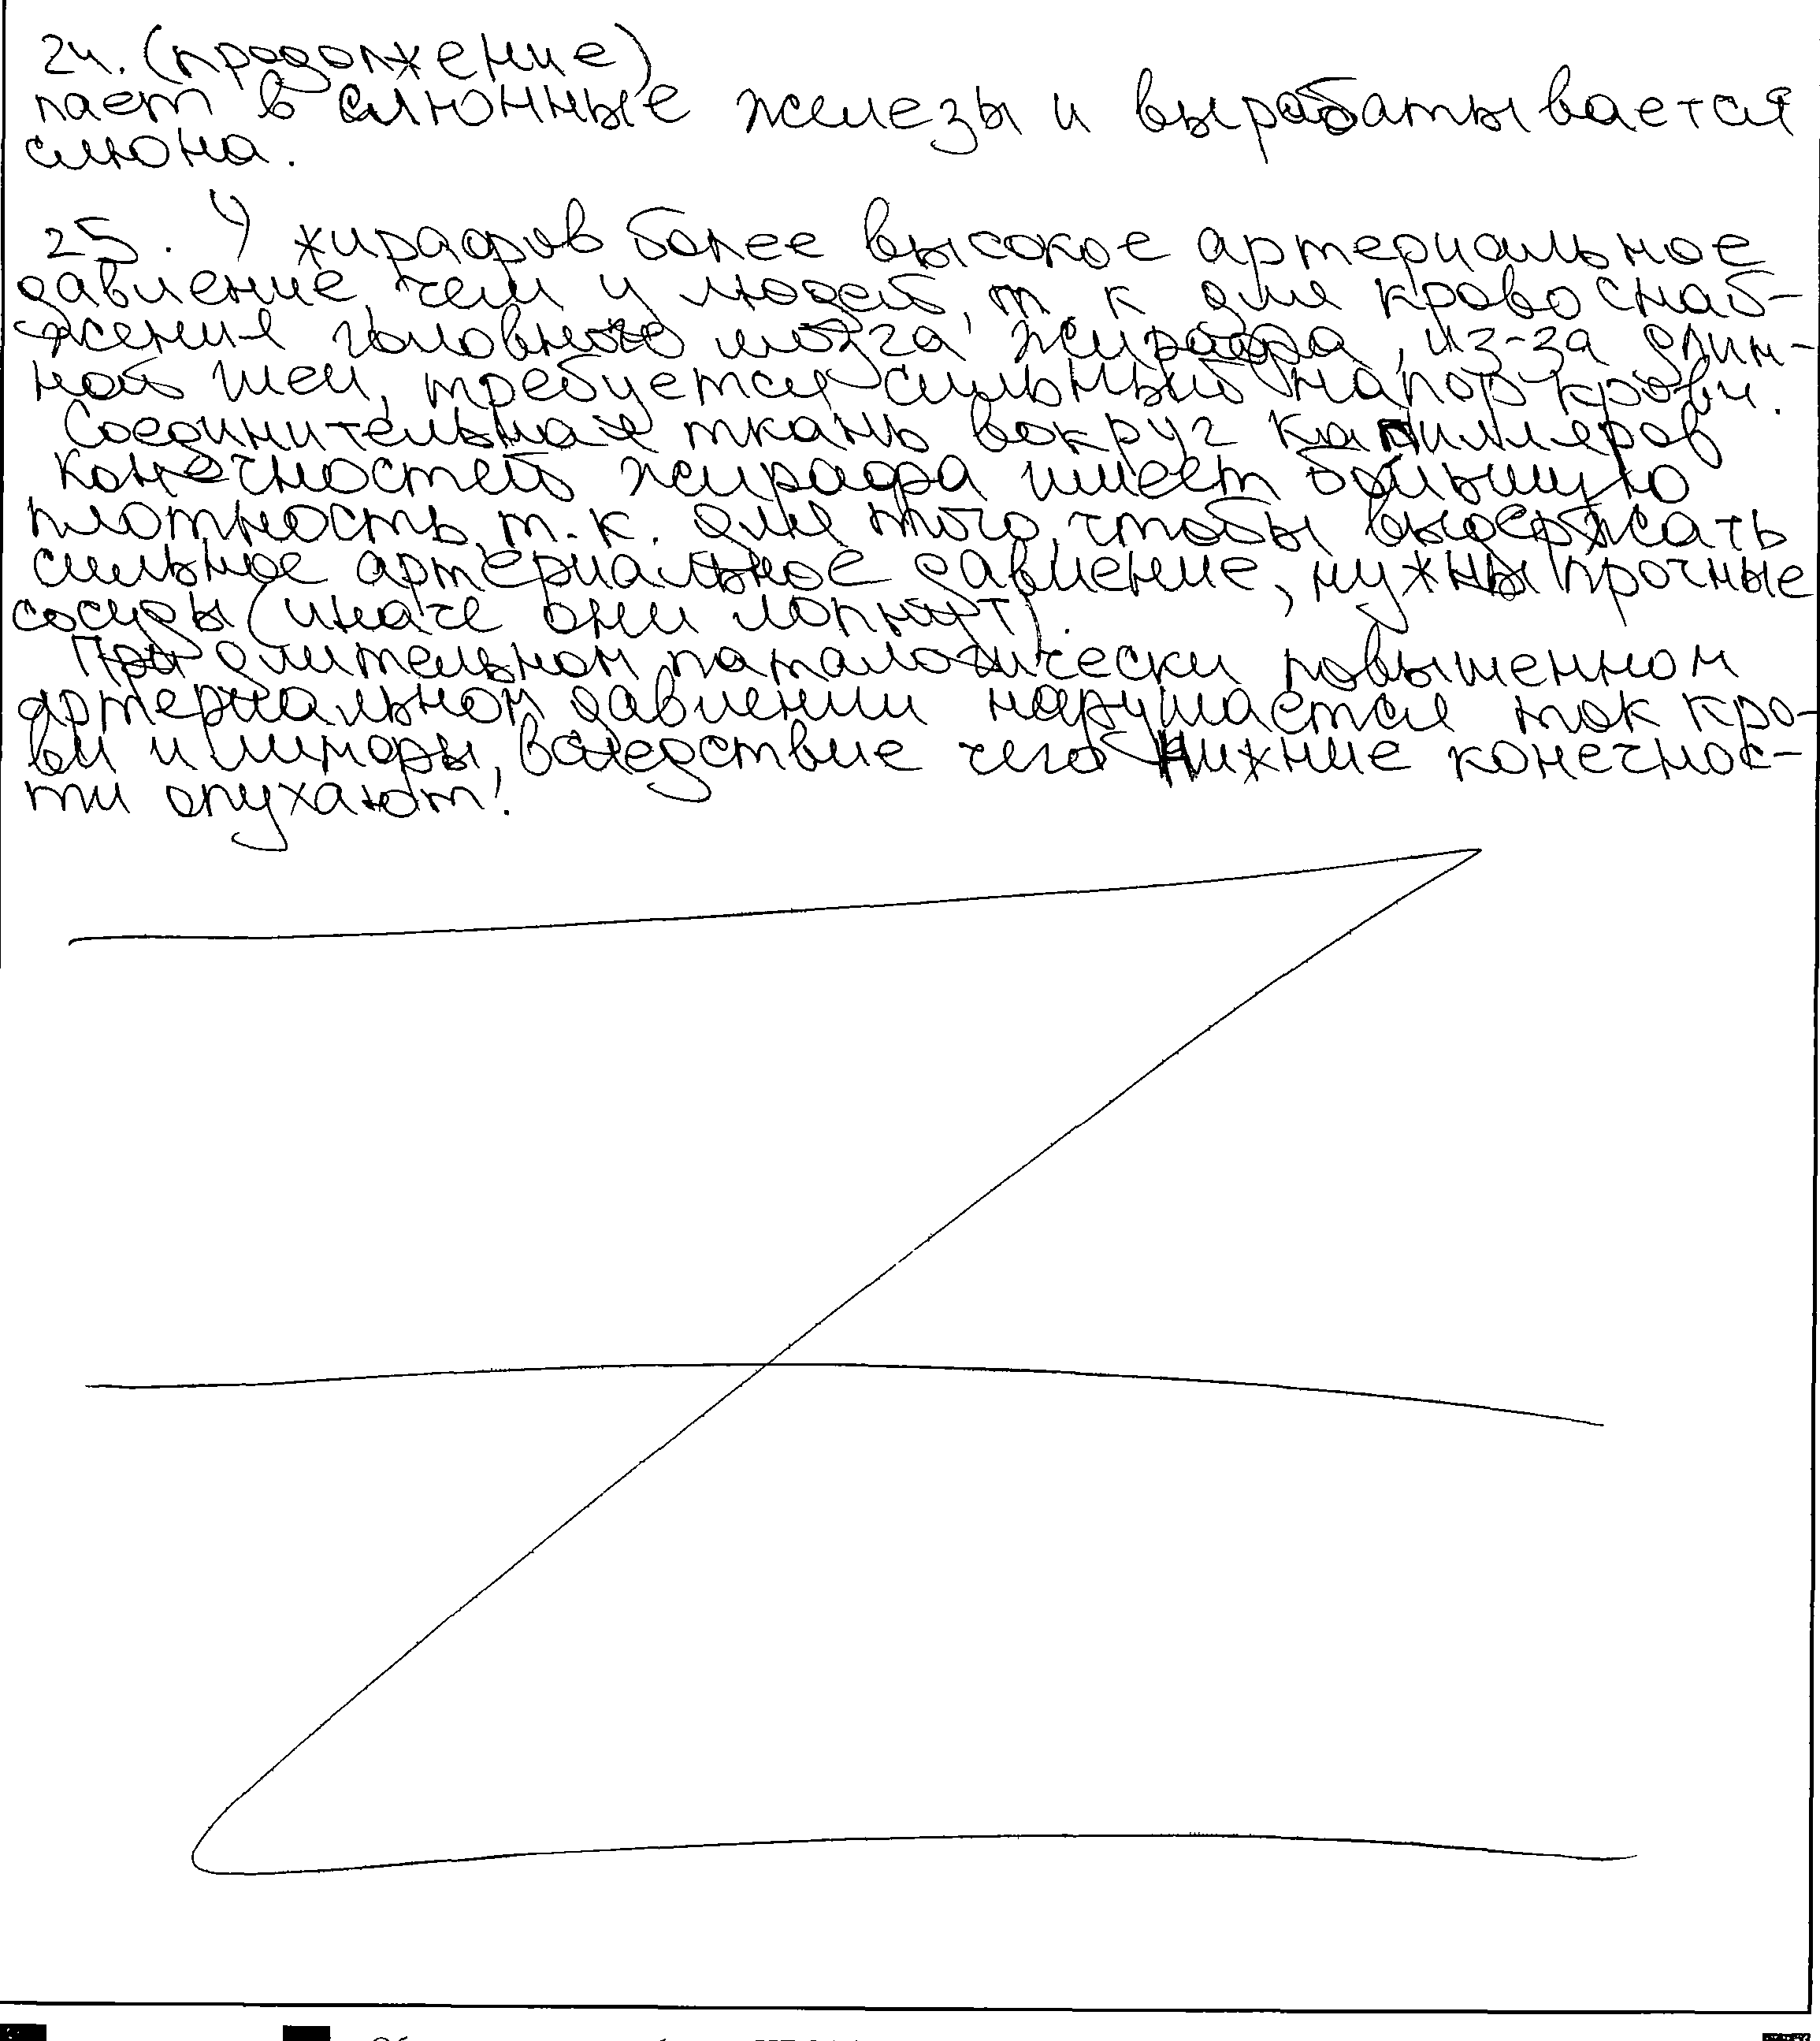 24. (продолжение)
пает в слюнные железы и вырабатывается
слюна.
25. У жирафов более высокое артериальное
давление, чем у людей, т. к для кровоснаб-
жения головного мозга жирафа, из-за длин-
ной шеи, требуется сильный напор крови.
Соединительная ткань вокруг капилляров
конечностей жирафа имеет большую
плотность, т.к. для того, чтобы выдержать
сильное артериальное давление, нужны прочные
сосуды (иначе они лопнут).
При длительном паталогически повышенном
артериальном давлении нарушается ток кро-
ви и лимфы, вследствие чего нижние конечнос-
ти опухают.